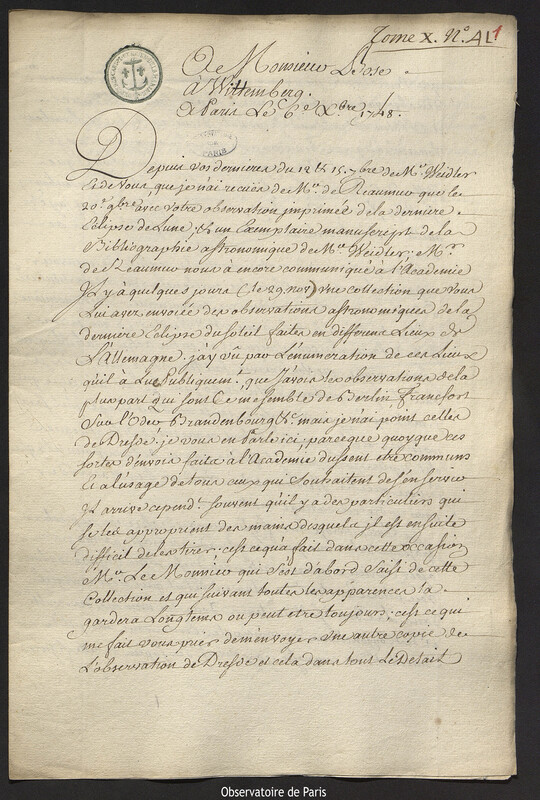 Tome X. N.o 41 1
De Monsieur De L'ose
à Wittemberg.
à Paris Le 6.e X.bre 1748.
Depuis vos dernieres du 12 & 15. 7bre de M.r Weidler
et de vous, que je n'ai recües de M.r de Reaumur que le
20.e 9bre avec votre observation imprimée de la derniere
Eclipse de Lune, & un Exemplaire manuscript de la
Bibliographie astronomique de M.r Weidler; M.r
de Reaumur nous à encore communiqué à l'Academie
Il y à quelques jours (le 29. nov.) une collection que vous
Lui avez envoiée des observations astronomiques de la
derniere Eclipse du soleil faites en differens Lieux de
L'allemagne. j'ay vû par L'enumeration de ces Lieux
qu'il a Lüe Publiquem.t que j'avois les observations de la
plus part qui sont ce me semble de Berlin, Francfort
Sur l'Oder, Brandenbourg &c. mais je n'ai point celles
de Dresde. je vous en Parle ici, parce que quoyque ces
sortes d'envois faits à l'Academie dussent etre communs
et à l'usage de tous ceux qui souhaitent de s'en servir
Il arrive cepend.t souvent qu'il y a des particuliers qui
se les approprient des mains desquels il est ensuite
difficil de les tirer; c'est ce qu'a fait dans cette occasion
M.r Le Monnier qui s'est d'abord saisi de cette
Collection et qui suivant toutes les apparences la
gardera Longtems ou peut etre toujours; c'est ce qui
me fait vous prier de m'envoyer une autre copie de
L'observation de Dresde et cela dans tout le Detail
Observatoire de Paris